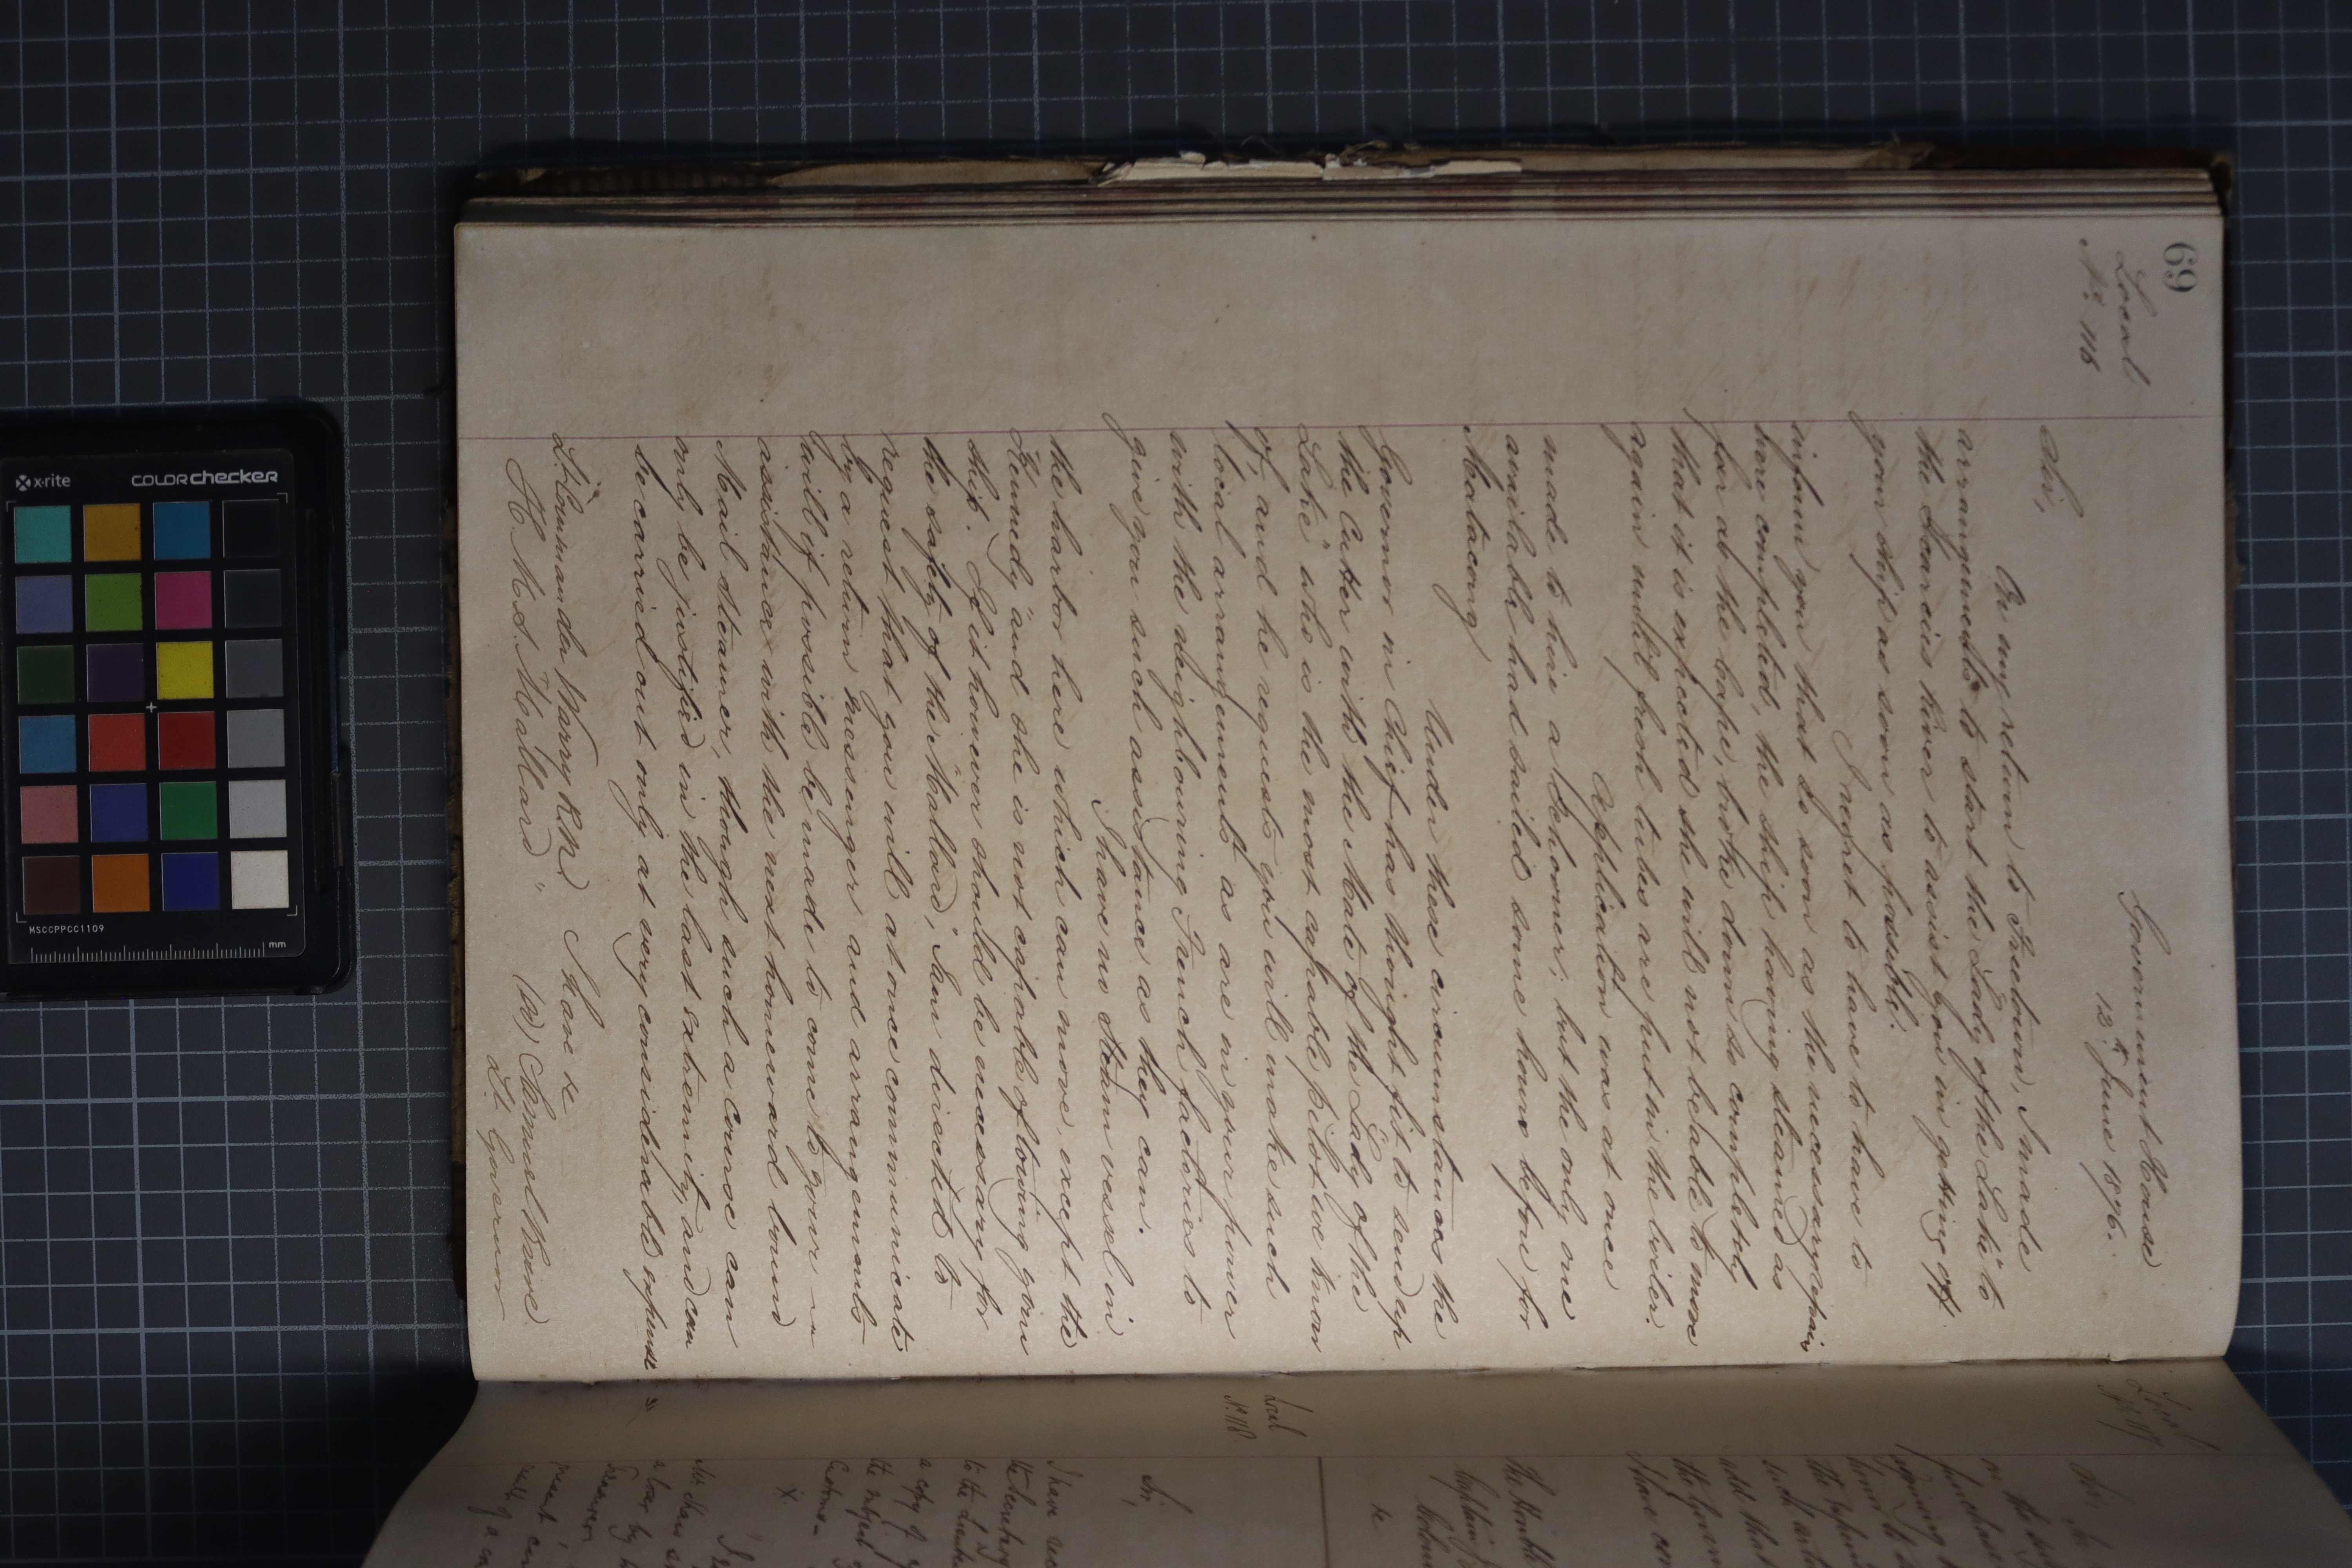 69
Local
No. 116
Government House
12th June 1876.
Sir,
On my return to Freetown, I made
arrangements to start the "Lady of the Lake" to
the Scarcies River to assist you in getting off
your ship as soon as possible.
I regret to have to have to
inform you that so soon as the necessary repairs
here completed, the ship having steamed as
far as the Cape, broke down so completely
that it is expected she will not be able to move
again until fresh tubes are put in the boiler.
Application was at once
made to hire a Schooner; but the only one
available had sailed some hours before for
Matacong
Under these circumstances the
Governor in Chief has thought fit to send up
the Cutter with the Mate of the "Lady of the
Lake" who is the most capable Pilot we know
of, and he requests you will make such
local arrangements as are in your power
with the neighbouring French factories to
give you such assistance as they can.
I have no steam vessel in
the harbor here which can move, except the
"Kennedy" and she is not capable of towing your
ship. If it however should be necessary for
the safety of the "Mallard," I am directed to
request that you will at once communicate
by a return messenger and arrangements
will if possible be made to come to your
assistance with the next homeward bound
Mail Steamer, though such a course can
only be justified in the last extremity, and can
be carried out only at very considerable expense
I have &c
Lt. Commander Warry R.N.
H.M.S. "Mallard".
(sd) Samuel Rowe
Lt. Governor
Local
No. 117
Sir,
I have
The Honble
&c
Local
No. 118
Sir,
I have
the Secretary
to the
a copy of
the subject
Customs
x